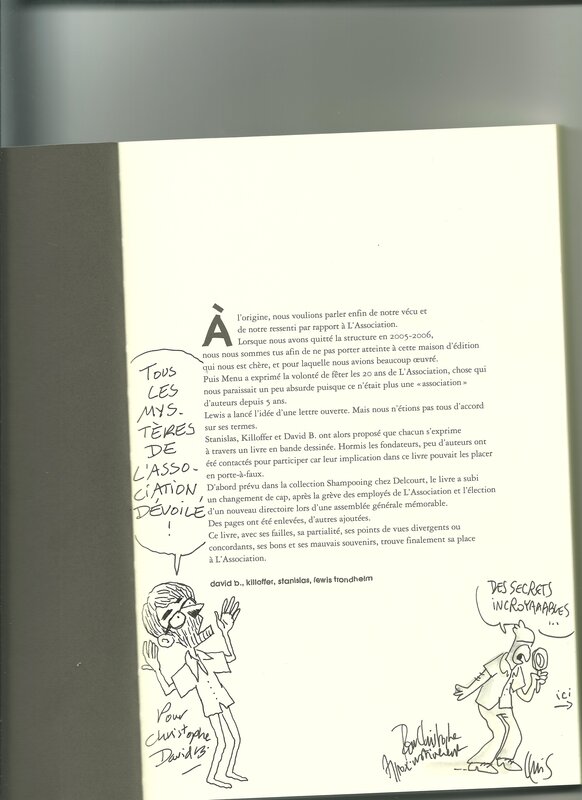 À l'origine, nous voulions parler enfin de notre vécu et
de notre ressenti par rapport à L'Association.
Lorsque nous avons quitté la structure en 2005-2006,
nous nous sommes tus afin de ne pas porter atteinte à cette maison d'édition
qui nous est chère, et pour laquelle nous avions beaucoup œuvré.
Puis Menu a exprimé la volonté de fêter les 20 ans de L'Association, chose qui
nous paraissait un peu absurde puisque ce n'était plus une « association »
d'auteurs depuis 5 ans.
Lewis a lancé l'idée d'une lettre ouverte. Mais nous n'étions pas tous d'accord
sur ses termes.
Stanislas, Killoffer et David B. ont alors proposé que chacun s'exprime
à travers un livre en bande dessinée. Hormis les fondateurs, peu d'auteurs ont
été contactés pour participer car leur implication dans ce livre pouvait les placer
en porte-à-faux.
D'abord prévu dans la collection Shampooing chez Delcourt, le livre a subi
un changement de cap, après la grève des employés de L'Association et l'élection
d'un nouveau directoire lors d'une assemblée générale mémorable.
Des pages ont été enlevées, d'autres ajoutées.
Ce livre, avec ses failles, sa partialité, ses points de vues divergents ou
concordants, ses bons et ses mauvais souvenirs, trouve finalement sa place
à L'Association.
david b., killoffer, stanislas, lewis trondheim
TOUS
LES
MYS-
TÈRES
DE
L'ASSO-
CIATION
DÉVOILÉ
!
Pour
Christophe
David B.
DES SECRETS
INCROYAAABLES
...
ici
Pour Christophe
Lewis